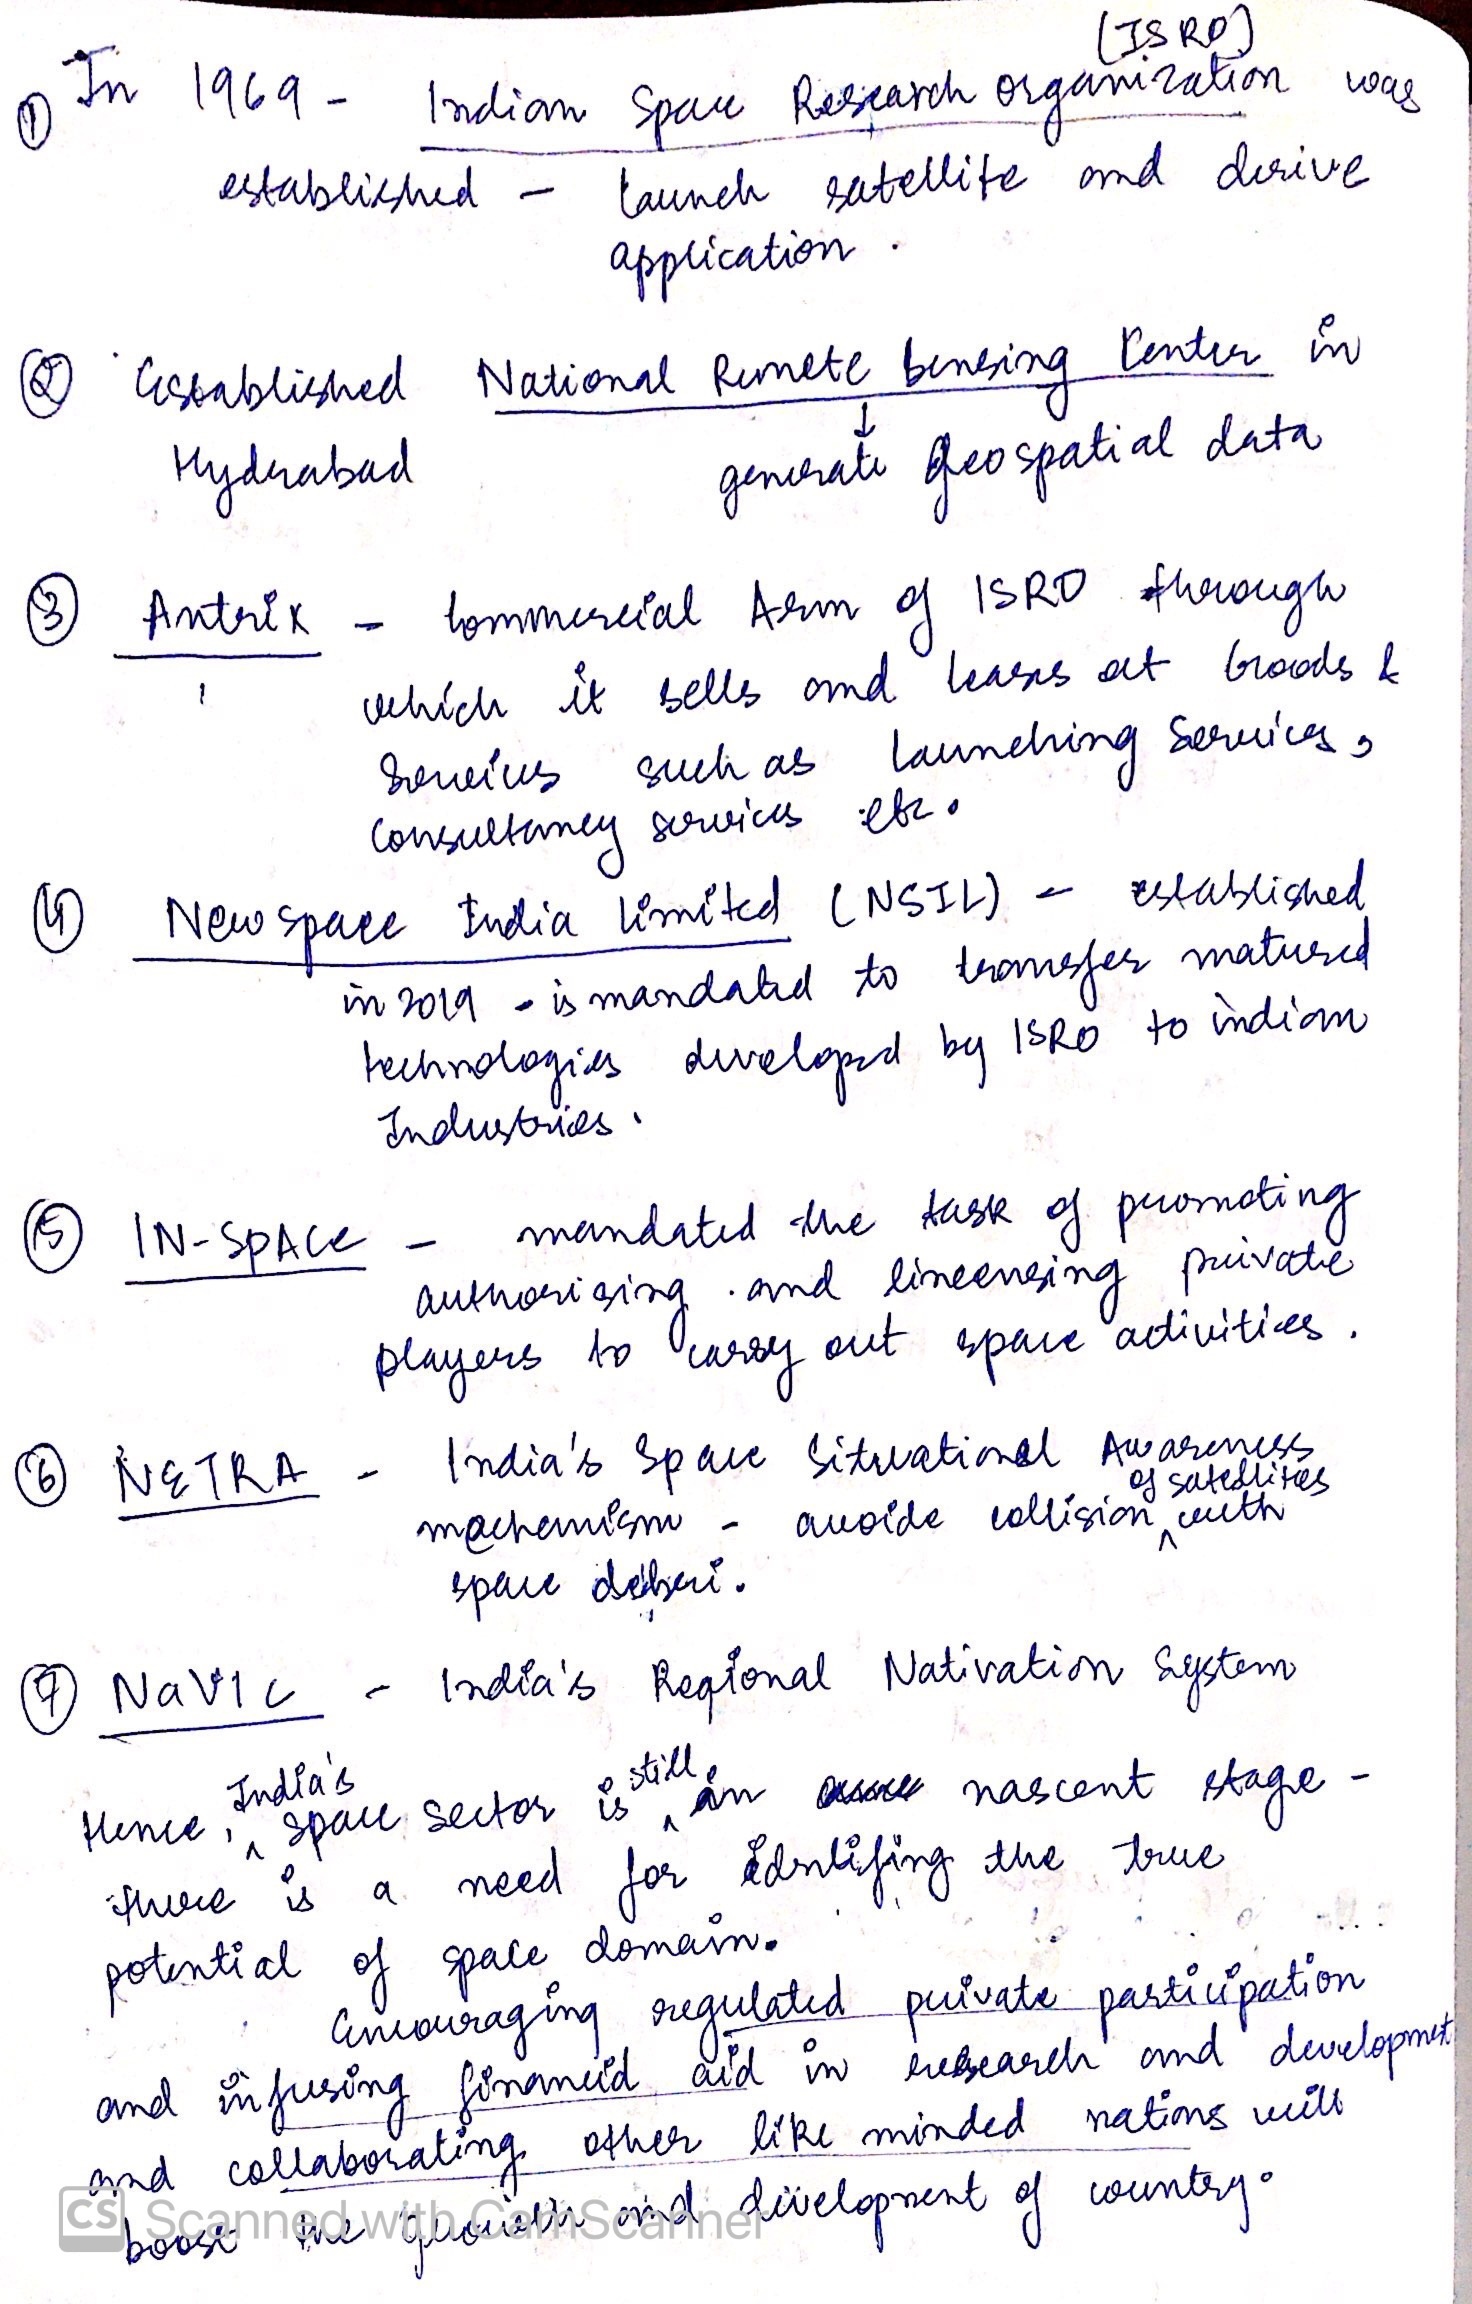 (ISRO)
① In 1969 - Indian Space Research organization was
established - launch satellite and derive
application.
② Established National Remote Sensing Center in
Hyderabad
↓
generate Geospatial data
③ Antrix - Commercial Arm of ISRO through
which it sells and leases out Goods &
Services such as launching Services,
Consultancy services etc.
④ New space India Limited (NSIL) - established
in 2019 - is mandated to transfer matured
technologies developed by ISRO to indian
Industries.
⑤ IN-SpACe - mandated the task of promoting
authorising and lincensing private
players to carry out space activities.
⑥ NETRA - India's Space Situational Awareness
mechanism - avoide collision of satellites with
space debri.
⑦ NaVIC - India's Regional Nativation System
Hence, India's space sector is still in nascent stage -
there is a need for identifing the true
potential of space domain.
Encouraging regulated private participation
and infusing financial aid in research and development
and collaborating other like minded nations will
boost the growth and development of country.
CS Scanned with CamScanner